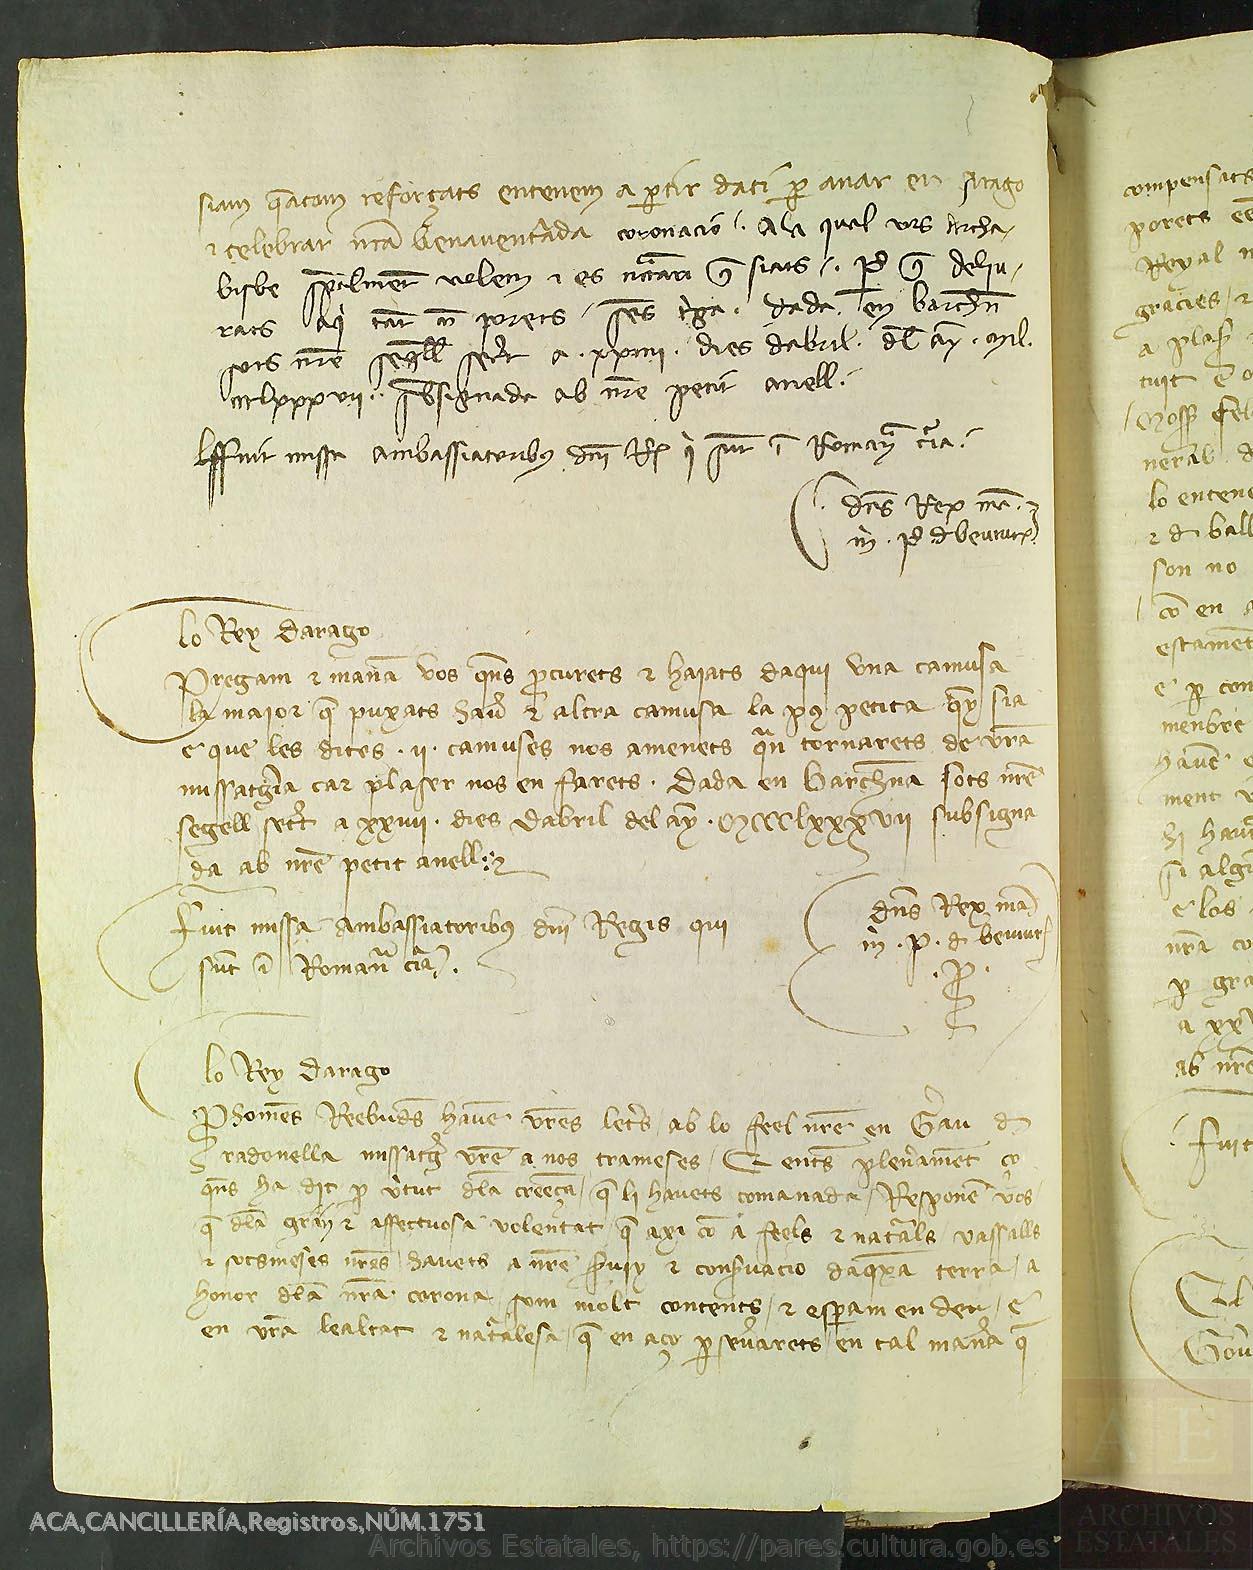 siam q̄acom reforçats entenem a ꝑtir daci ꝑ anar en Arago
⁊ celebrar nr̄a benauent̄ada coronacio. Ala qual vos Archa-
bisbe sp̄alment̄ volem ⁊ es nc̄c̄ari q̄ siats. ꝑ q̄ deliu-
rats aq̄i tāt com porets / sēs triga. dada en barch̄n
sots nr̄e segell sec̄r̄t a. xxiiii. dies dabril. dl̄ any. Mil.
ccclxxxvii. subsignada ab nr̄e petit anell.
ffuit missa ambassiatoribus dn̄i R̄ q̄i sūt ī Roman̄ cr̄ia.
dn̄s Rex
m̄. p̄. d
lo Rey darago
Pregam ⁊ manā vos qn̄s p̄curets ⁊ haiats daqui vna camusa
la maior q̄ puxats hau̅ ⁊ altra camusa la pus petita q̄y sia
e que les dites .ii. camuses nos amenets qn̄ tornarets de vr̄a
missatgīa car plaser nos en farets. Dada en barch̄na sots nr̄e
segell sec̄t a xxiiii. dies dabril del any. Mccclxxxvii subsigna
da ab nr̄e petit anell.
Fuit missa ambassiatoribus dn̄i Regis qui
sūt ī Roman̄ cīa.
dn̄s Rex
m̄. p. d
.P.
lo Rey darago
Ꝓhomēs Reebudēs hauē vr̄es letr̄s / ab lo feel nr̄e en Gr̄au d
radonella missatḡ vr̄e a nos trameses / E entēs plen̄ament co
qn̄s ha dit ꝑ v̄tut dl̄a creēça / q̄ li hauets comanada / Responē vos /
q̄ dl̄a gran ⁊ affectuosa volentat / q̄ axi cō a feels ⁊ nat̄als / vassalls
⁊ sotsmeses nr̄es / hauets a nr̄e s̄uey ⁊ cons̄uacio daq̄xa terra / a
honor dl̄a nr̄a corona / som molt contents / ⁊ esꝑam en deu / e
en vr̄a lealtat ⁊ nat̄alesa / q̄ en aço ꝑseu̅arets / en tal man̄a q̄
compensats
porets
Reyal
gracies / ⁊
a plas̄
tuit e
Mossē
lo entene
⁊ d ball
son no
cō en
estament
e ꝑ com
menbre
hauē
ment v
si algū
e los
nr̄a co
ꝑ gra
a xx
ab nr̄e
Fuit
ACA,CANCILLERÍA,Registros,NÚM.1751
Archivos Estatales, https://pares.cultura.gob.es
AE
ARCHIVOS
ESTATALES